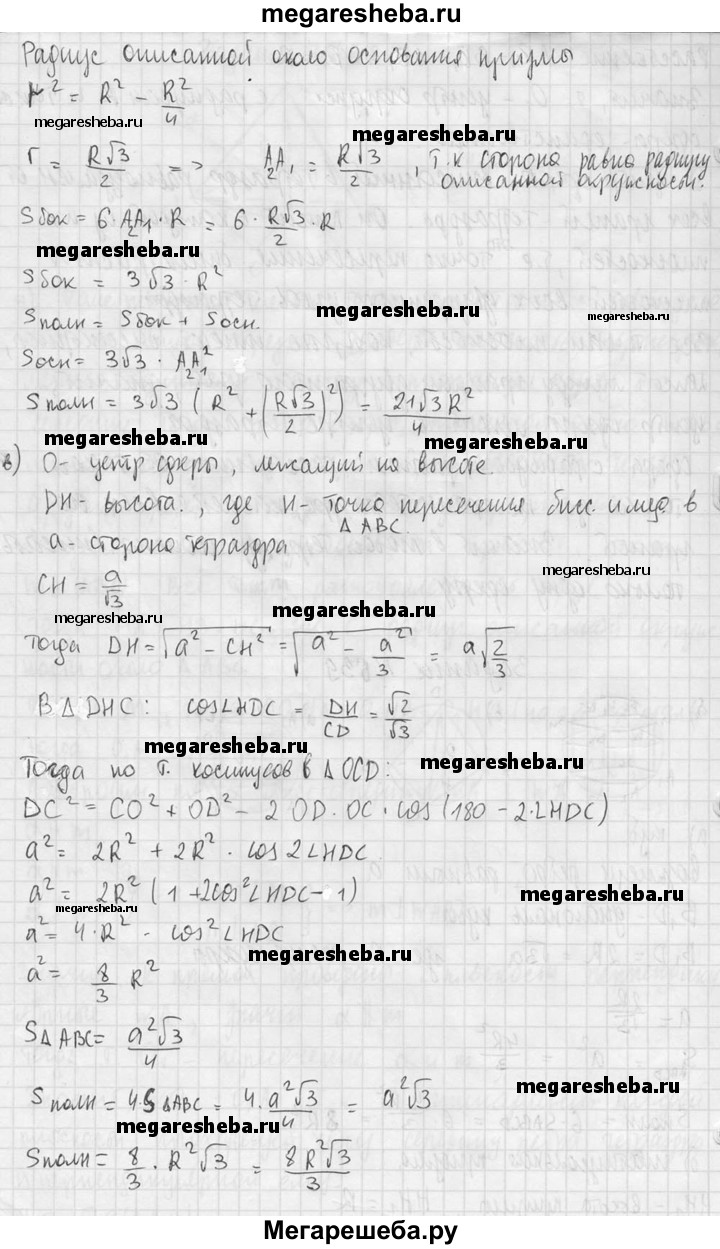 megaresheba.ru
Радиус описанной около основания призмы
r² = R² - R²/4
megaresheba.ru megaresheba.ru megaresheba.ru
r = R√3/2 => A₂A₁ = R√3/2, т.к сторона равна радиусу
описанной окружности.
Sбок = 6·A₂A₁·R = 6·R√3/2·R
megaresheba.ru
Sбок = 3√3·R²
megaresheba.ru megaresheba.ru
Sполн = Sбок + Sосн.
Sосн = 3√3·A₂A₁²
Sполн = 3√3 (R² + (R√3/2)²) = 21√3R²/4
megaresheba.ru megaresheba.ru
в) O - центр сферы, лежащий на высоте.
DH - высота., где H - точка пересечения бисс. и мед в
△ ABC.
a - сторона тетраэдра
megaresheba.ru
CH = a/√3
megaresheba.ru megaresheba.ru
Тогда DH = √(a² - CH²) = √(a² - a²/3) = a√(2/3)
В △ DHC: cos∠HDC = DH/CD = √2/√3
megaresheba.ru megaresheba.ru
Тогда по т. косинусов в △ OCD:
DC² = CO² + OD² - 2 OD·OC·cos(180 - 2·∠HDC)
a² = 2R² + 2R²·cos 2∠HDC
a² = 2R² (1 + 2cos²∠HDC - 1)
megaresheba.ru megaresheba.ru
a² = 4·R²·cos²∠HDC
megaresheba.ru
a² = 8/3 R²
S△ABC = a²√3/4
megaresheba.ru
Sполн = 4·S△ABC = 4·a²√3/4 = a²√3
megaresheba.ru megaresheba.ru
Sполн = 8/3·R²√3 = 8R²√3/3
Мегарешеба.ру